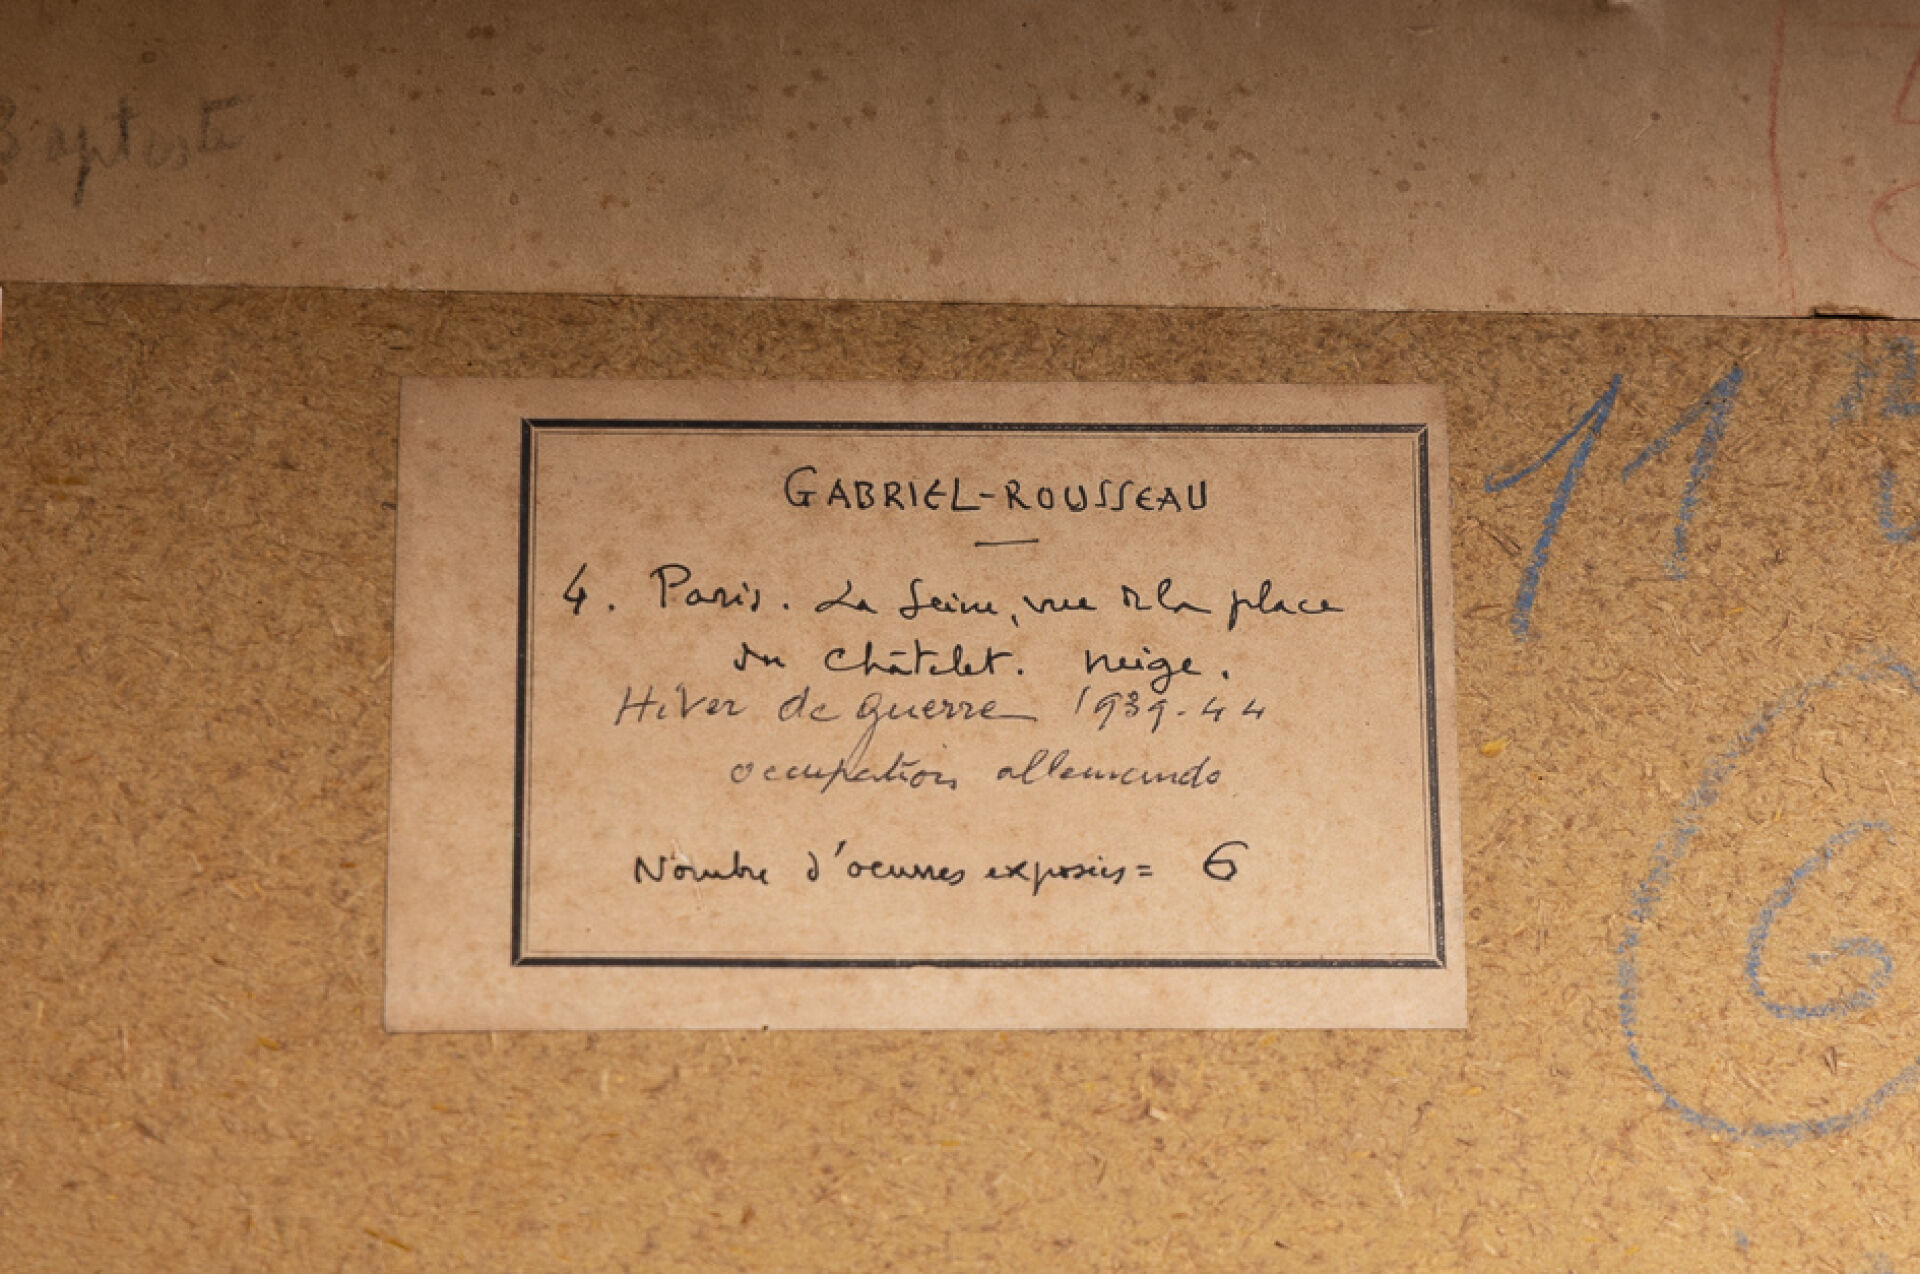 Baptiste
GABRIEL-ROUSSEAU
4. Paris. La Seine, vue de la place
du Châtelet. Neige.
Hiver de guerre 1939-44
occupation allemande
Nombre d'oeuvres exposées = 6
11
6